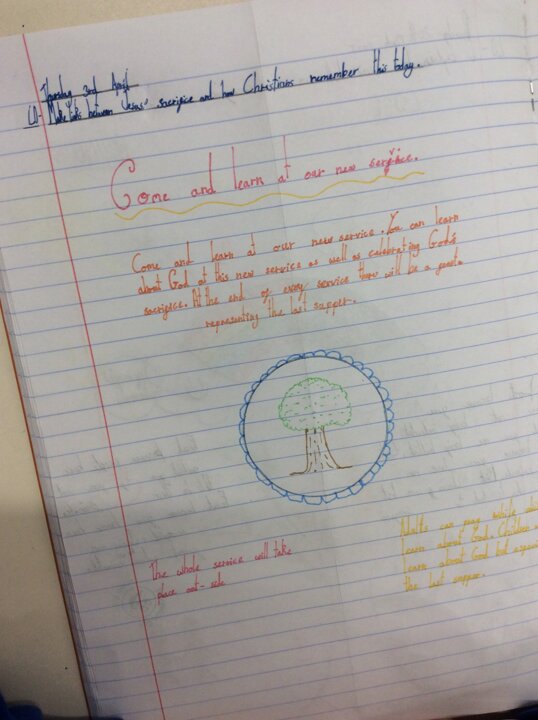 Thursday 2nd April
LO- Make links between Jesus' sacrifice and how Christians remember this today.
Come and learn at our new service.
Come and learn at our new service. You can learn
about God at this new service as well as celebrating God's
sacrifice. At the end of every service there will be a
representing the last supper.
The whole service will take
place out-side
Adults can pray while
learn about God. Children
learn about God but
the last supper.